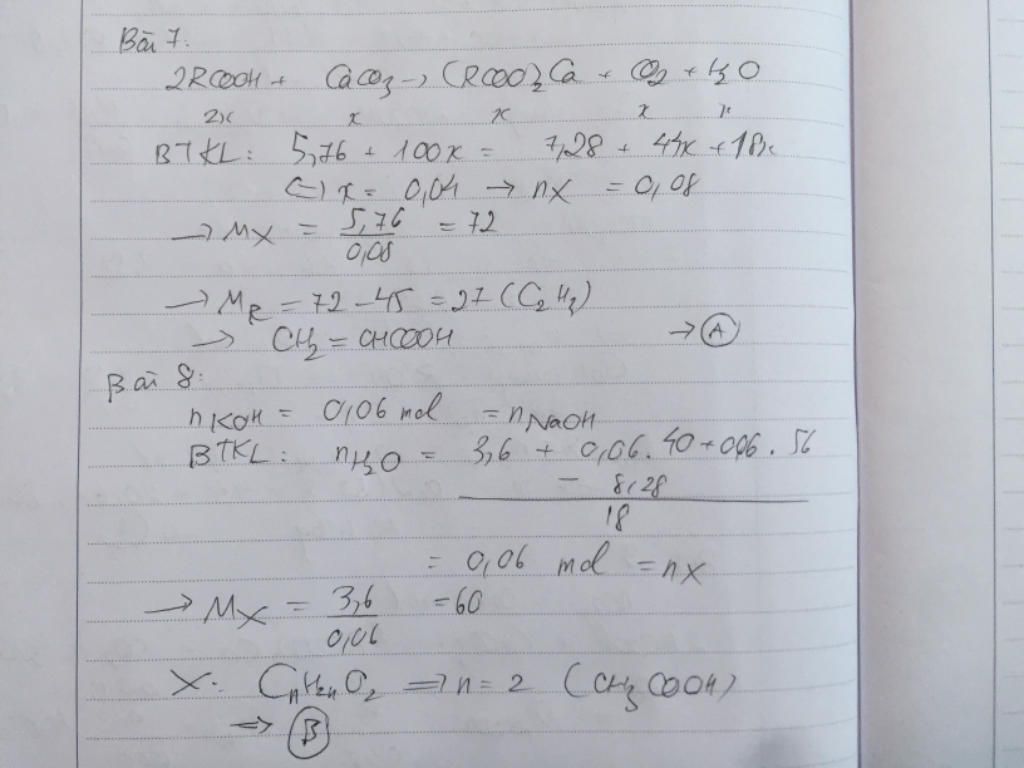 Bài 7:
2RCOOH + CaCO3 → (RCOO)2Ca + CO2 + H2O
2x x x x x
BTKL: 5,76 + 100x = 7,28 + 44x + 18x
(=) x = 0,04 → nX = 0,08
→ MX = 5,76 / 0,08 = 72
→ MR = 72 - 45 = 27 (C2H3)
→ CH2 = CHCOOH → A
Bài 8:
nKOH = 0,06 mol = nNaOH
BTKL: nH2O = 3,6 + 0,06. 40 + 0,06. 56
- 8,28
18
= 0,06 mol = nX
→ MX = 3,6 / 0,06 = 60
X: CnH2nO2 => n = 2 (CH3COOH)
=> B